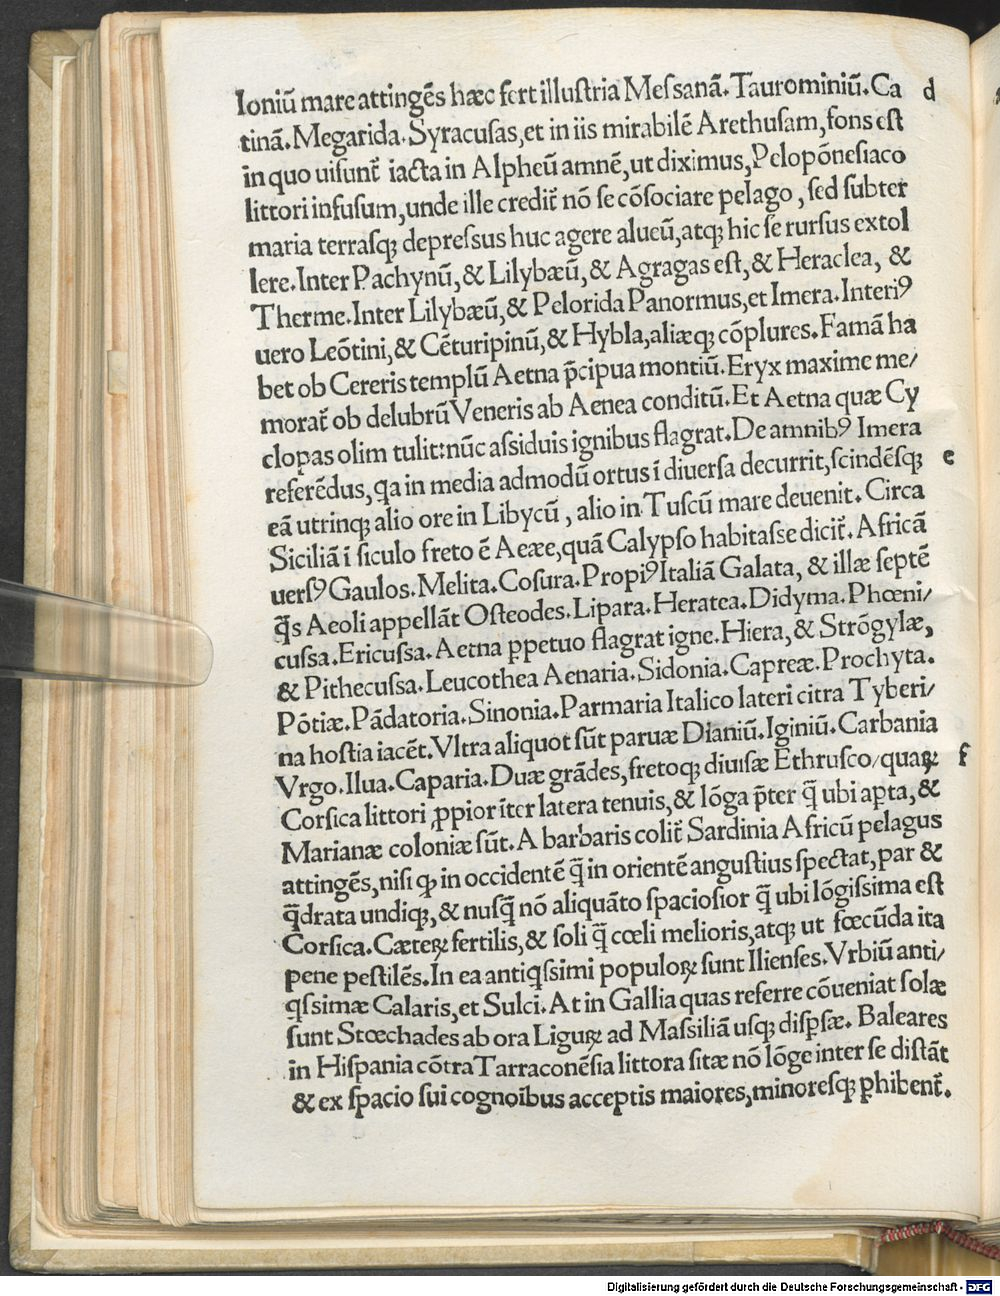 Ioniū mare attingēs hæc fert illuſtria Meſſanā. Taurominiū. Ca d
tinā. Megarida. Syracuſas, et in iis mirabilē Arethuſam, fons eſt
in quo uiſunt̃ iacta in Alpheū amnē, ut diximus, Pelopōneſiaco
littori infuſum, unde ille credit̃ nō ſe cōſociare pelago, ſed ſubter
maria terraſqꝫ depreſſus huc agere alueū, atqꝫ hic ſe rurſus extol
lere. Inter Pachynū, & Lilybæū, & Agragas eſt, & Heraclea, &
Therme. Inter Lilybæū, & Pelorida Panormus, et Imera. Interiꝰ
uero Leōtini, & Cēturipinū, & Hybla, aliæqꝫ cōplures. Famā ha
bet ob Cereris templū Aetna p̄cipua montiū. Eryx maxime me/
morat̃ ob delubrū Veneris ab Aenea conditū. Et Aetna quæ Cy
clopas olim tulit: nūc aſſiduis ignibus flagrat. De amnibꝰ Imera
referēdus, qa in media admodū ortus ī diuerſa decurrit, ſcindēſqꝫ e
eā utrinqꝫ alio ore in Libycū, alio in Tuſcū mare deuenit. Circa
Siciliā ī ſiculo freto ē Aeæe, quā Calypſo habitaſſe dicit̃. Africā
uerſꝰ Gaulos. Melita. Coſura. Propiꝰ Italiā Galata, & illæ ſeptē
q̄s Aeoli appellāt Oſteodes. Lipara. Heratea. Didyma. Phœni/
cuſſa. Ericuſſa. Aetna ꝑpetuo flagrat igne. Hiera, & Strōgylæ,
& Pithecuſſa. Leucothea Aenaria. Sidonia. Capreæ. Prochyta.
Pōtiæ. Pādatoria. Sinonia. Parmaria Italico lateri citra Tyberi/
na hoſtia iacēt. Vltra aliquot ſūt paruæ Dianiū. Iginiū. Carbania
Vrgo. Ilua. Caparia. Duæ grādes, fretoqꝫ diuiſæ Ethruſco/quaꝝ f
Corſica littori ꝓpior īter latera tenuis, & lōga p̄ter q̄ ubi aꝑta, &
Marianæ coloniæ ſūt. A barbaris colit̃ Sardinia Africū pelagus
attingēs, niſi ꝙ in occidentē q̄ in orientē anguſtius ſpectat, par &
q̄drata undiqꝫ, & nuſq̄ nō aliquāto ſpacioſior q̄ ubi lōgiſſima eſt
Corſica. Cæteꝝ fertilis, & ſoli q̄ cœli melioris, atqꝫ ut fœcūda ita
pene peſtilēs. In ea antiqſſimi populoꝝ ſunt Ilienſes. Vrbiū anti/
qſſimæ Calaris, et Sulci. At in Gallia quas referre cōueniat ſolæ
ſunt Stœchades ab ora Liguꝝ ad Maſſiliā uſqꝫ diſꝑſæ. Baleares
in Hiſpania cōtra Tarraconēſia littora ſitæ nō lōge inter ſe diſtāt
& ex ſpacio ſui cognoibus acceptis maiores, minoreſqꝫ ꝑhibent̃.
Digitalisierung gefördert durch die Deutsche Forschungsgemeinschaft - DFG